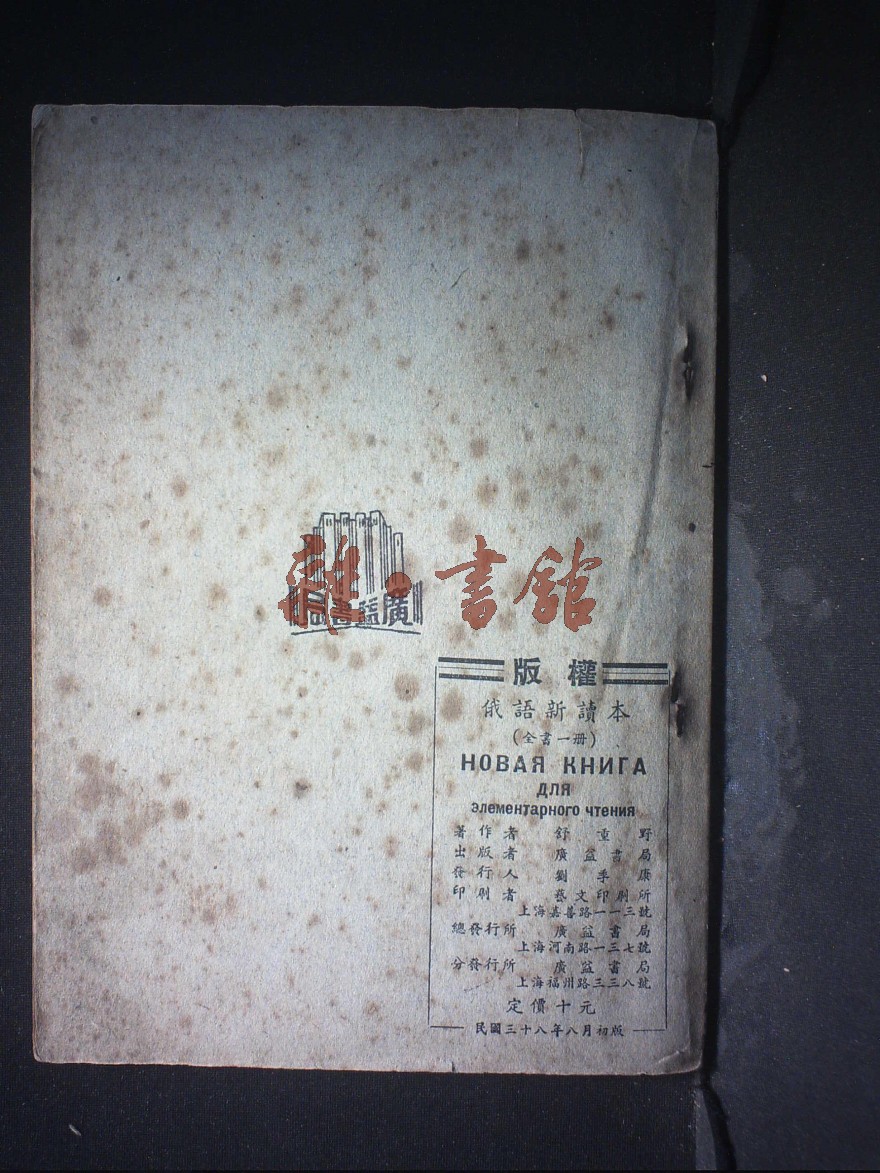 雜·書館
廣益書局
版權
俄語新讀本
(全書一册)
НОВАЯ КНИГА
ДЛЯ
элементарного чтения
著作者 舒重野
出版者 廣益書局
發行人 劉季康
印刷者 藝文印刷所
上海嘉善路一一三號
總發行所 廣益書局
上海河南路一三七號
分發行所 廣益書局
上海福州路三三八號
定價十元
民國三十八年八月初版